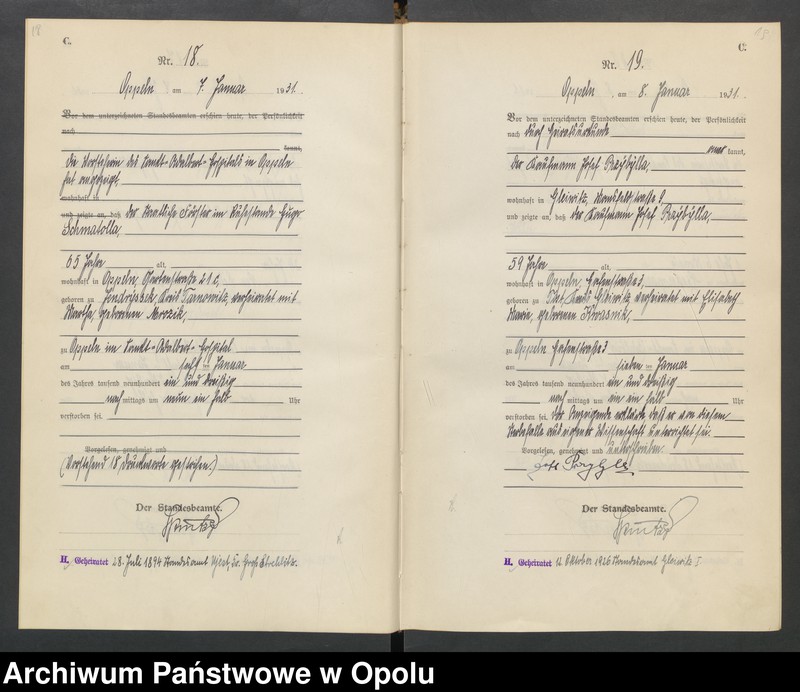 18
C.
Nr. 18.
Oppeln am 7. Januar 1931.
Vor dem unterzeichneten Standesbeamten erschien heute, der Persönlichkeit
nach
kannt,
die Vorsteherin des Sankt-Adalbert-Hospitals in Oppeln
hat angezeigt,
wohnhaft in
und zeigte an, daß der Staatliche Förster im Ruhestande Hugo
Schmatolla,
65 Jahre alt,
wohnhaft in Oppeln, 21c,
geboren zu Kreis Tarnowitz, verheiratet mit
Martha, geborenen Mrozek,
zu Oppeln im Sankt-Adalbert-Hospital
am sechsten Januar
des Jahres tausend neunhundert ein und dreißig
nach mittags um neun ein halb Uhr
verstorben sei.
Vorgelesen, genehmigt und
(Vorstehend 18 Druckworte gestrichen.)
Der Standesbeamte.
H. Geheiratet 28. Juli 1894 Standesamt Ujest, Kr. Groß Strehlitz.
C.
Nr. 19.
Oppeln am 8. Januar 1931.
Vor dem unterzeichneten Standesbeamten erschien heute, der Persönlichkeit
nach durch Heiratsurkunde
aner kannt,
der Kaufmann Josef Przybylla,
wohnhaft in Gleiwitz,
und zeigte an, daß der Kaufmann Josef Przybylla,
59 Jahre alt,
wohnhaft in Oppeln, Hafenstraße 3,
geboren zu Kreis Gleiwitz, verheiratet mit Elisabeth
Marie, geborenen Kwasnik,
zu Oppeln Hafenstraße 3
am sieben ten Januar
des Jahres tausend neunhundert ein und dreißig
nach mittags um ein ein halb Uhr
verstorben sei. Der Anzeigende erklärte, daß er von diesem
Sterbefalle aus eigener Wissenschaft unterrichtet sei.
Vorgelesen, genehmigt und unterschrieben.
Der Standesbeamte.
H. Geheiratet 12. Oktober 1926 Standesamt Gleiwitz I.
Archiwum Państwowe w Opolu